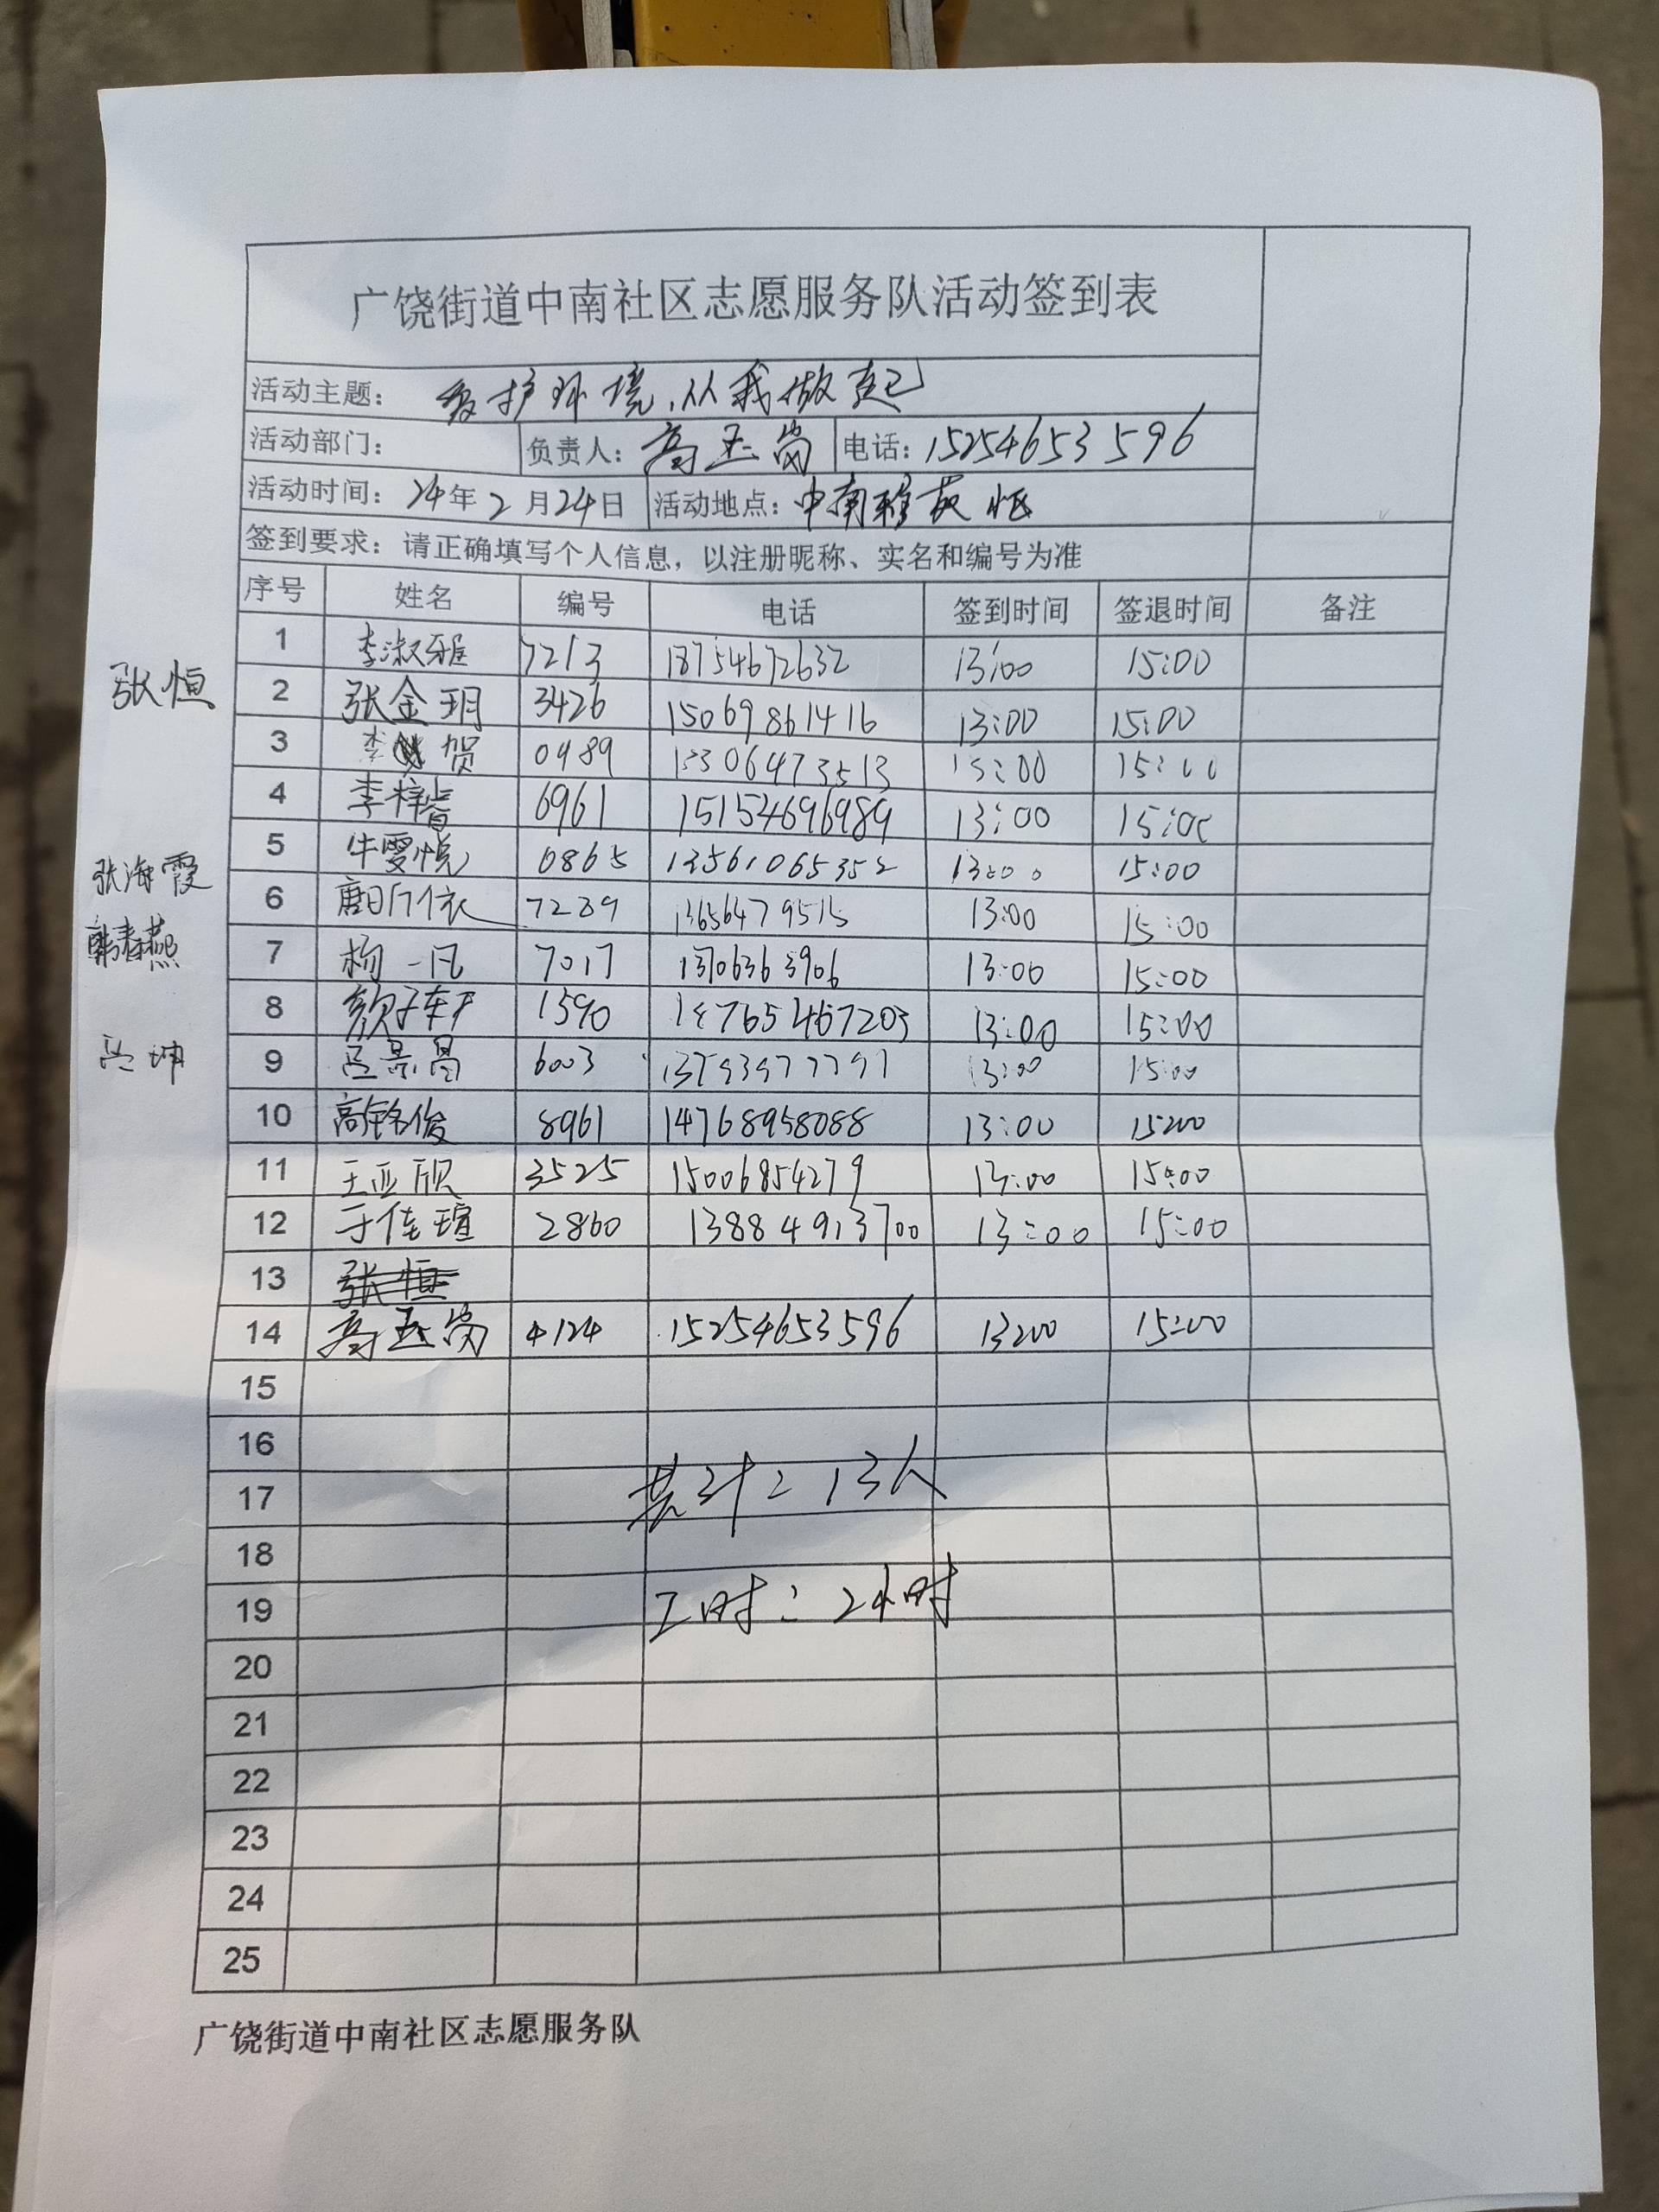 广饶街道中南社区志愿服务队活动签到表
活动主题: 爱护环境,从我做起
活动部门: 负责人: 高玉岗 电话: 15254653596
活动时间: 24年2月24日 活动地点: 中南雅苑
签到要求: 请正确填写个人信息,以注册昵称、实名和编号为准
序号 姓名 编号 电话 签到时间 签退时间 备注
1 李淑雅 7213 18754672632 13:00 15:00
张恒
2 张金玥 3426 15069861416 13:00 15:00
3 李 贺 0489 13306473513 15:00 15:00
4 李梓睿 6961 15154696989 13:00 15:00
5 牛雯悦 0865 13561065352 13:00 15:00
张海霞
6 7289 13656479515 13:00 15:00
韩春燕
7 杨一凡 7017 13706363906 13:00 15:00
8 颜子 1590 13:00 15:00
9 吕景昌 6003 13793977797 13:00 15:00
吕坤
10 高铭俊 8961 14768958088 13:00 15:00
11 王亚欣 3525 15006854279 13:00 15:00
12 于佳瑄 2860 13884913700 13:00 15:00
13 张恒
14 高玉岗 4124 15254653596 13:00 15:00
15
16
17 共计: 13人
18
19 工时: 2小时
20
21
22
23
24
25
广饶街道中南社区志愿服务队